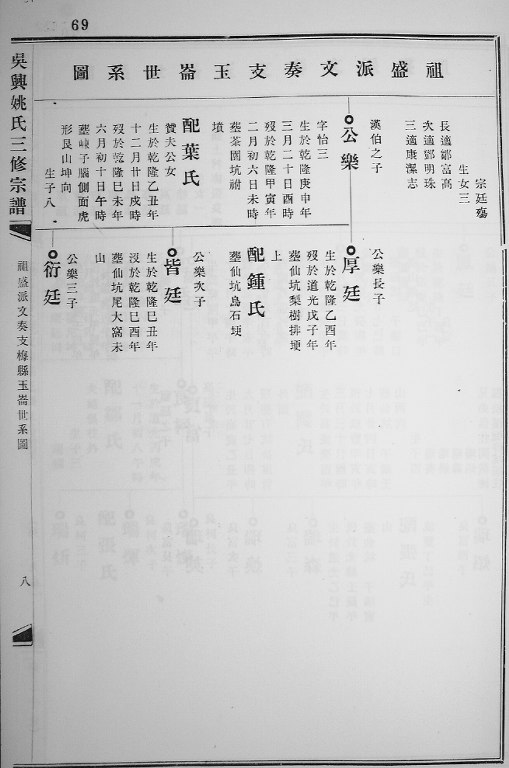 69
祖盛派文奏支玉崙世系圖
吳興姚氏三修宗譜
祖盛派文奏支梅縣玉崙世系圖
八
宗廷殤
生女三
長適鄒富高
次適鄧明珠
三適康潔志
漢伯之子
公樂
字怡三
生於乾隆庚申年
三月二十日酉時
歿於乾隆甲寅年
二月初六日未時
塟茶園坑祔
墳
配葉氏
贊夫公女
生於乾隆乙丑年
十二月廿日戌時
歿於乾隆巳未年
六月初十日午時
塟崠子腦側面虎
形艮山坤向
生子八
公樂長子
厚廷
生於乾隆乙酉年
歿於道光戊子年
塟仙坑梨樹排埂
上
配鍾氏
塟仙坑烏石埂
公樂次子
皆廷
生於乾隆巳丑年
沒於乾隆巳酉年
塟仙坑尾大窩未
山
公樂三子
衍廷